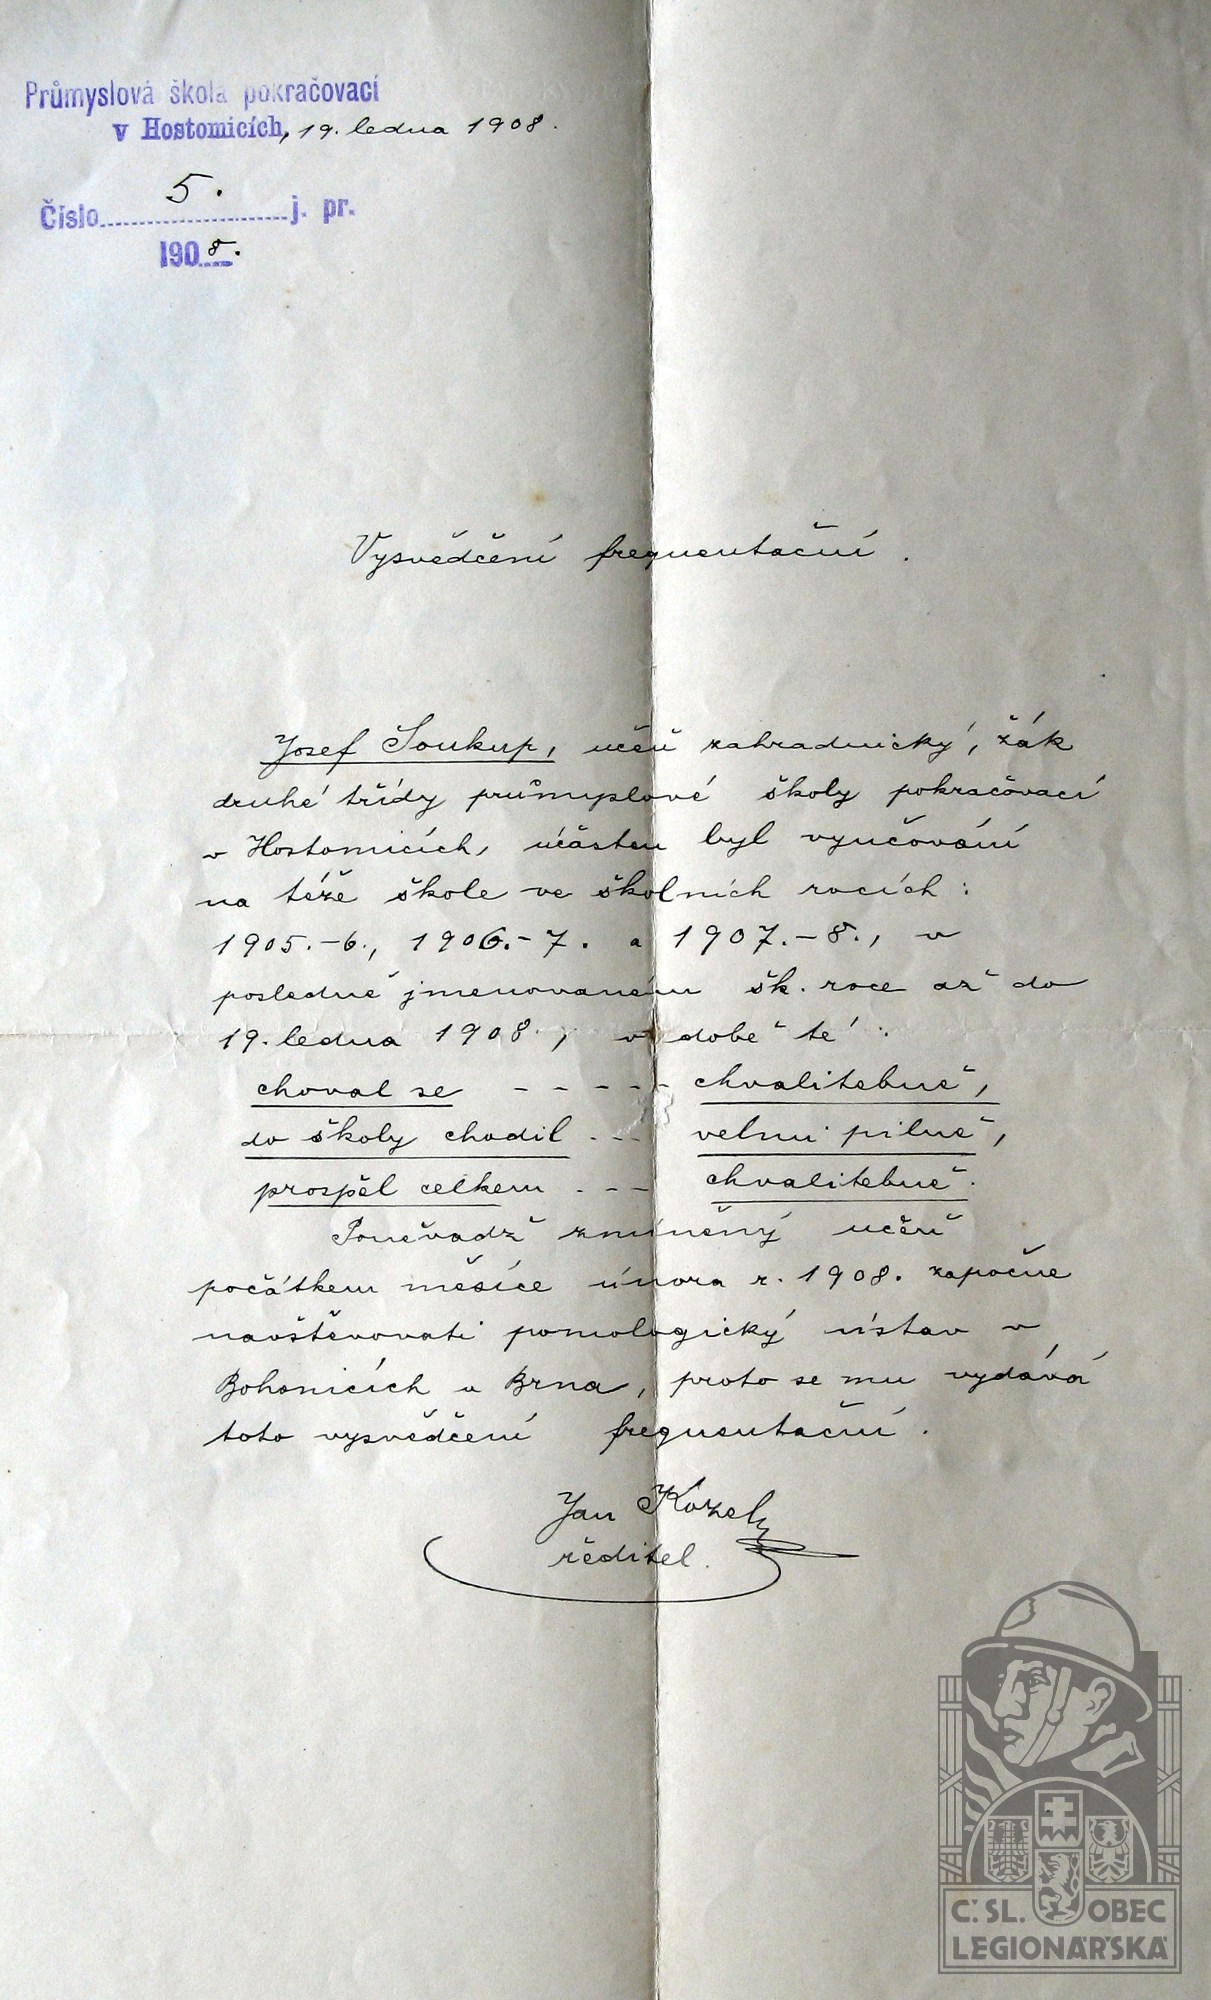 Průmyslová škola pokračovací
v Hostomicích, 19. ledna 1908.
Číslo 5. j. pr.
1908.
Vysvědčení frequentační.
Josef Soukup, učeň zahradnický, žák
druhé třídy průmyslové školy pokračovací
v Hostomicích, účasten byl vyučování
na téže škole ve školních rocích:
1905.-6., 1906.-7. a 1907.-8., v
posledně jmenovaném šk. roce až do
19. ledna 1908, v době té:
choval se - - - - - chvalitebně,
do školy chodil - - - velmi pilně,
prospěl celkem - - - chvalitebně.
Poněvadž zmíněný učeň
počátkem měsíce února r. 1908. započne
navštěvovati pomologický ústav v
Bohonicích u Brna, proto se mu vydává
toto vysvědčení frequentační.
Jan Kozel
ředitel.
Č.SL. OBEC
LEGIONÁŘSKÁ